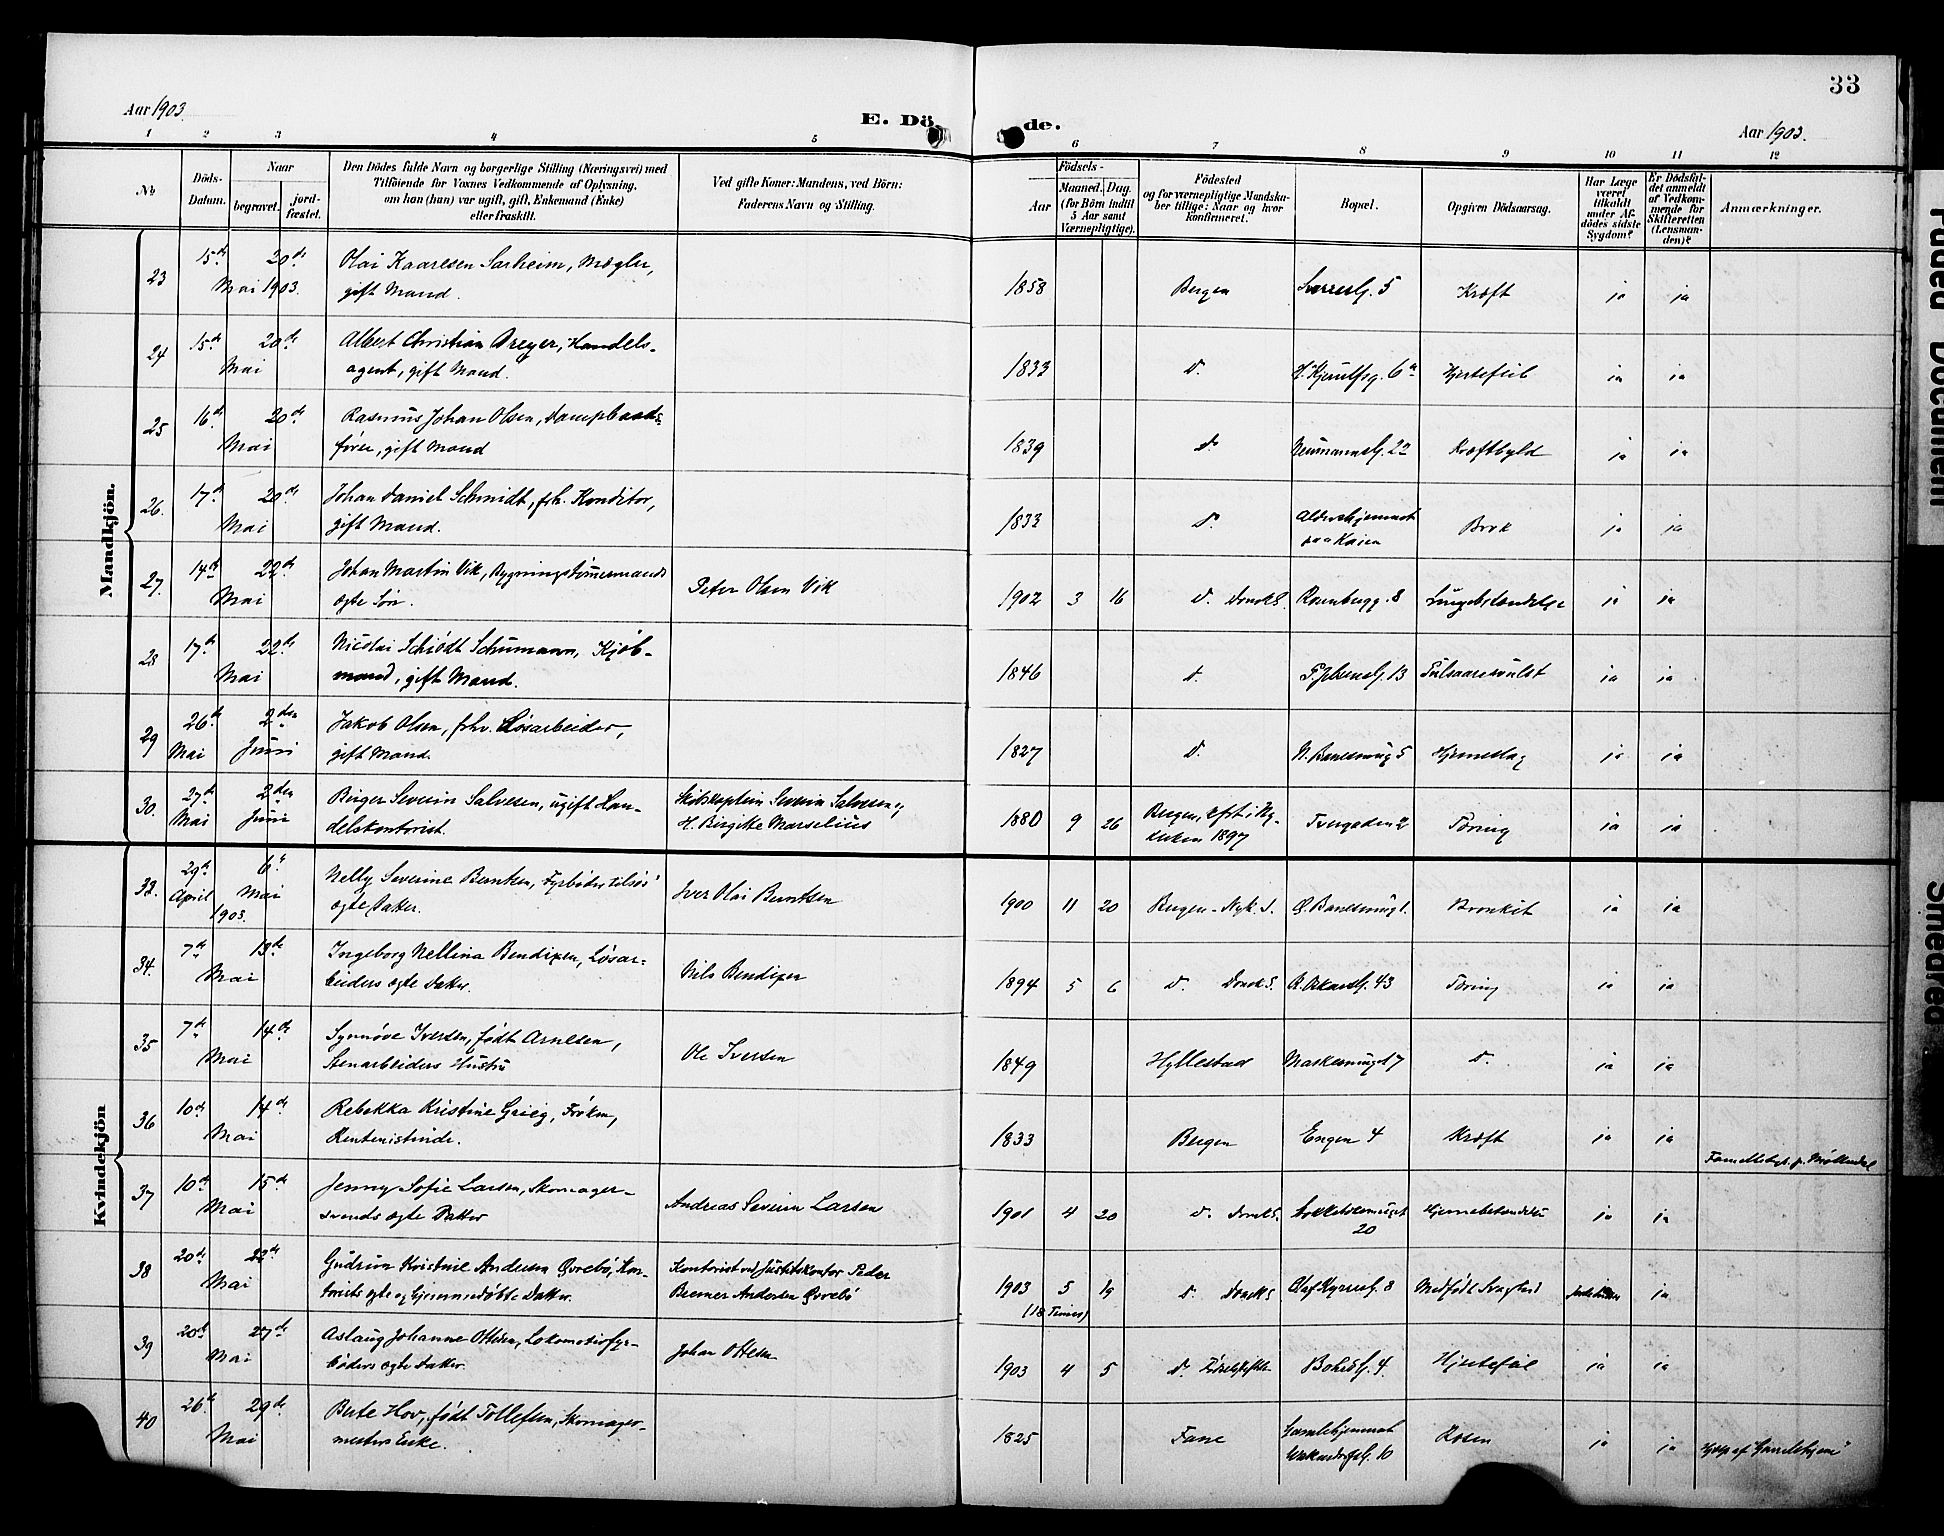 33
Aar 1903.
E. Dö de.
Aar 1903.
1 2 3 4 5 6 7 8 9 10 11 12
No
Döds-Datum.
Naar
begravet.
jord-fæstet.
Den Dödes fulde Navn og borgerlige Stilling (Næringsvei) med
Tilföiende for Voxnes Vedkommende af Oplysning,
om han (hun) var ugift, gift, Enkemand (Enke)
eller fraskilt.
Ved gifte Koner: Mandens, ved Börn:
Faderens Navn og Stilling.
Födsels-
Aar
Maaned. Dag.
(for Börn indtil
5 Aar samt
Værnepligtige).
Födested
og for værnepligtige Mandska-
ber tillige: Naar og hvor
konfirmeret.
Bopæl.
Opgiven Dödsaarsag.
Har Læge
været
tilkaldt
under Af-
dödes sidste
Sygdom?
Er Dödsfal-
det anmeldt
af Vedkom-
mende for
Skifteretten
(Lensman-
den)?
Anmærkninger.
Mandkjön.
23 15de 20de Olai Kaarlsen Sarheim, Mægler, 1858 Bergen Sverresg. 5 Kræft ja ja
Mai 1903. gift Mand.
24 15de 20de Albert Christian Dreyer, Handels- 1833 D. H. Kjerulfsg. 6a Hjertefeil ja ja
Mai agent, gift Mand.
25 16de 20de Rasmus Johan Olsen, Dampbaads- 1839 D. Neumannsg. Kræftbyld ja ja
Mai fører, gift Mand
26. 17de 20de Johan Daniel Schmidt, fhv. Konditor, 1833 D. Aldershjemmet Brok ja ja
Mai gift Mand. paa Kaien
27. 14de 22de Johan Martin Vik, Bygningstømermands Peter Olsen Vik 1902 3 16 D. Domk S. Rosenbergg. 8 Lungebetændelse ja ja
Mai ægte Søn.
28 17de 22de Nicolai Schiødt Schumann, Kjøb- 1846 D. 13 Pulsaaresvulst ja ja
Mai mand, gift Mand.
29 26de 2den Jakob Olsen, fhv. Løsarbeider, 1827 D. 5 Hjerneslag ja ja
Mai Juni gift Mand.
30. 27de 2den Birger Severin Salvesen, ugift Han- Skibskaptein Severin Salvesen, 1880 9 26 Bergen, kfrt i Ny- Tvergaden 2 Tæring ja ja
Mai Juni delskontorist. H. Birgitte Marselius kirken 1897
Kvindekjön
33. 29de 6te Nelly Severine Berntsen, Fyrbøder tilsøs Iver Olai Berntsen 1900 11 20 Bergen - Nyk. S. Bronkit ja ja
April Mai 1903. ægte Datter.
34. 7de 13de Ingeborg Nellina Bendixen, Løsar- Nils Bendixen 1894 5 6 D. Domk S. 43 Tæring ja ja
Mai beiders ægte Datter.
35 7de 14de Synnøve Iversen, født Arnesen, Ole Iversen 1849 Hyllestad 7 D. ja ja
Mai Stenarbeiders Hustru
36 10de 14de Rebekka Kristine Grieg, Frøken, 1833 Bergen Engen 4 Kræft ja ja
Mai Rentenistinde. Familiebegr. p. Møllendal
37 10de 15de Jenny Sofie Larsen, Skomager- Andreas Severin Larsen 1901 4 20 D. Domk S. 20 Hjernebetændelse ja ja
Mai svends ægte Datter
38 20de 22de Gudrun Kristine Andersen Øvrebø, Kon- Kontorist ved Justitskontor Peder 1903 5 19 D. Domk S Olaf Kyrresg. 8 Medfødt Svaghed ja
Mai torists ægte og hjemmedøbte Datter. Bremer Andersen Øvrebø (18 Timer)
39 20de 27de Aslaug Johanne Ottesen, Lokomotivfyr- Johan Ottesen 1903 4 5 D. Fødselsstiftelse Bohrsg. 4. Hjertefeil ja ja
Mai bøders ægte Datter.
40 26de 29de Berte Hov, født Tollefsen, Skomager- 1825 Fane Gamlehjemmet Rosen ja ja
Mai mesters Enke. 10
Faded Document
Smeared